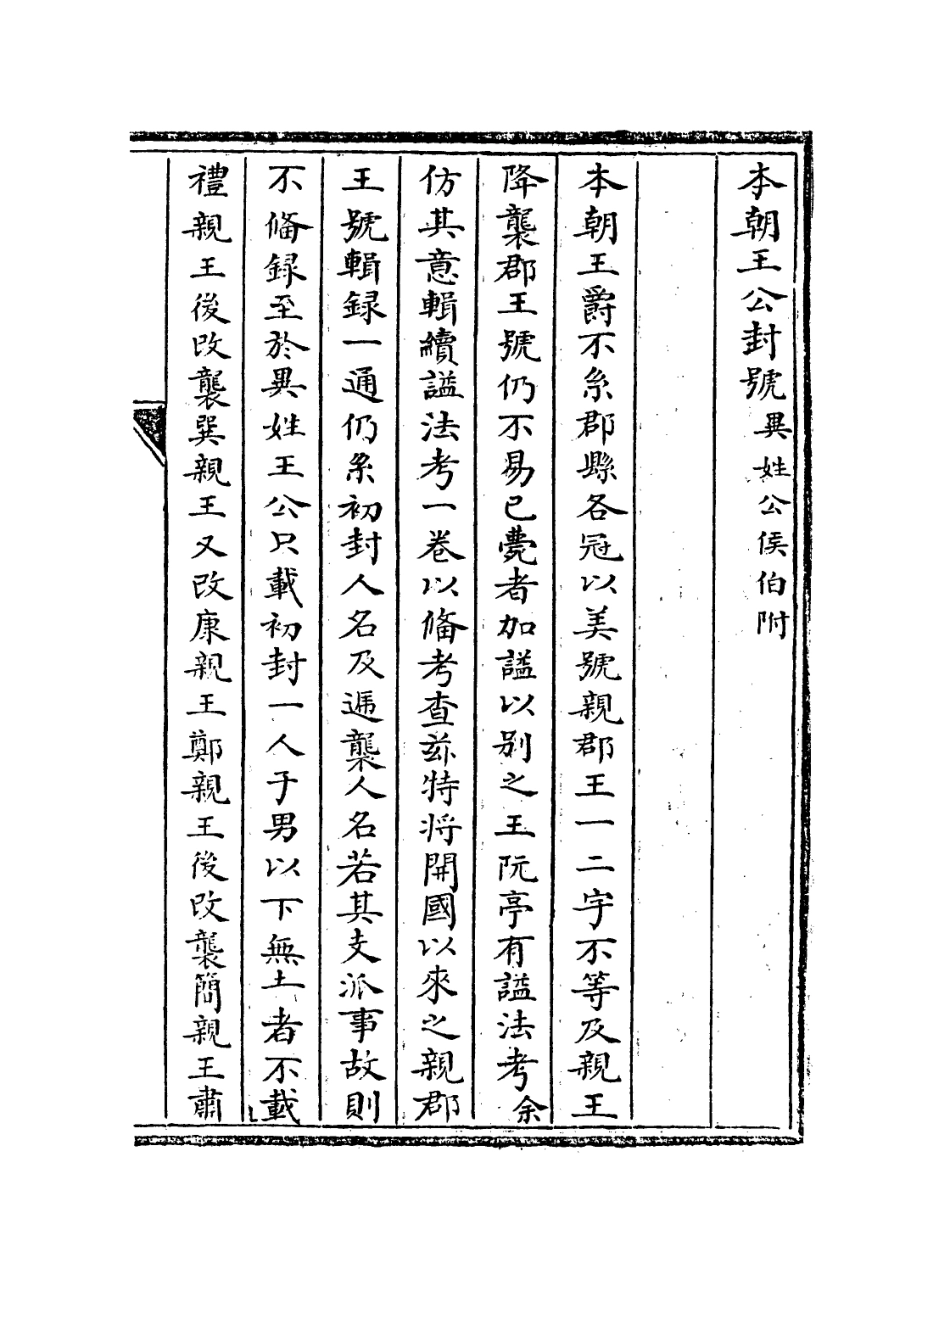 本朝王公封號異姓公侯伯附
本朝王爵不系郡縣各冠以美號親郡王一二字不等及親王
降襲郡王號仍不易已薨者加謚以别之王阮亭有謚法考余
仿其意輯續謚法考一卷以俻考查茲特将開國以來之親郡
王號輯録一通仍系初封人名及遞襲人名若其支派事故則
不俻録至於異姓王公只載初封一人于男以下無土者不載
禮親王後改襲巽親王又改康親王鄭親王後改襲簡親王肅